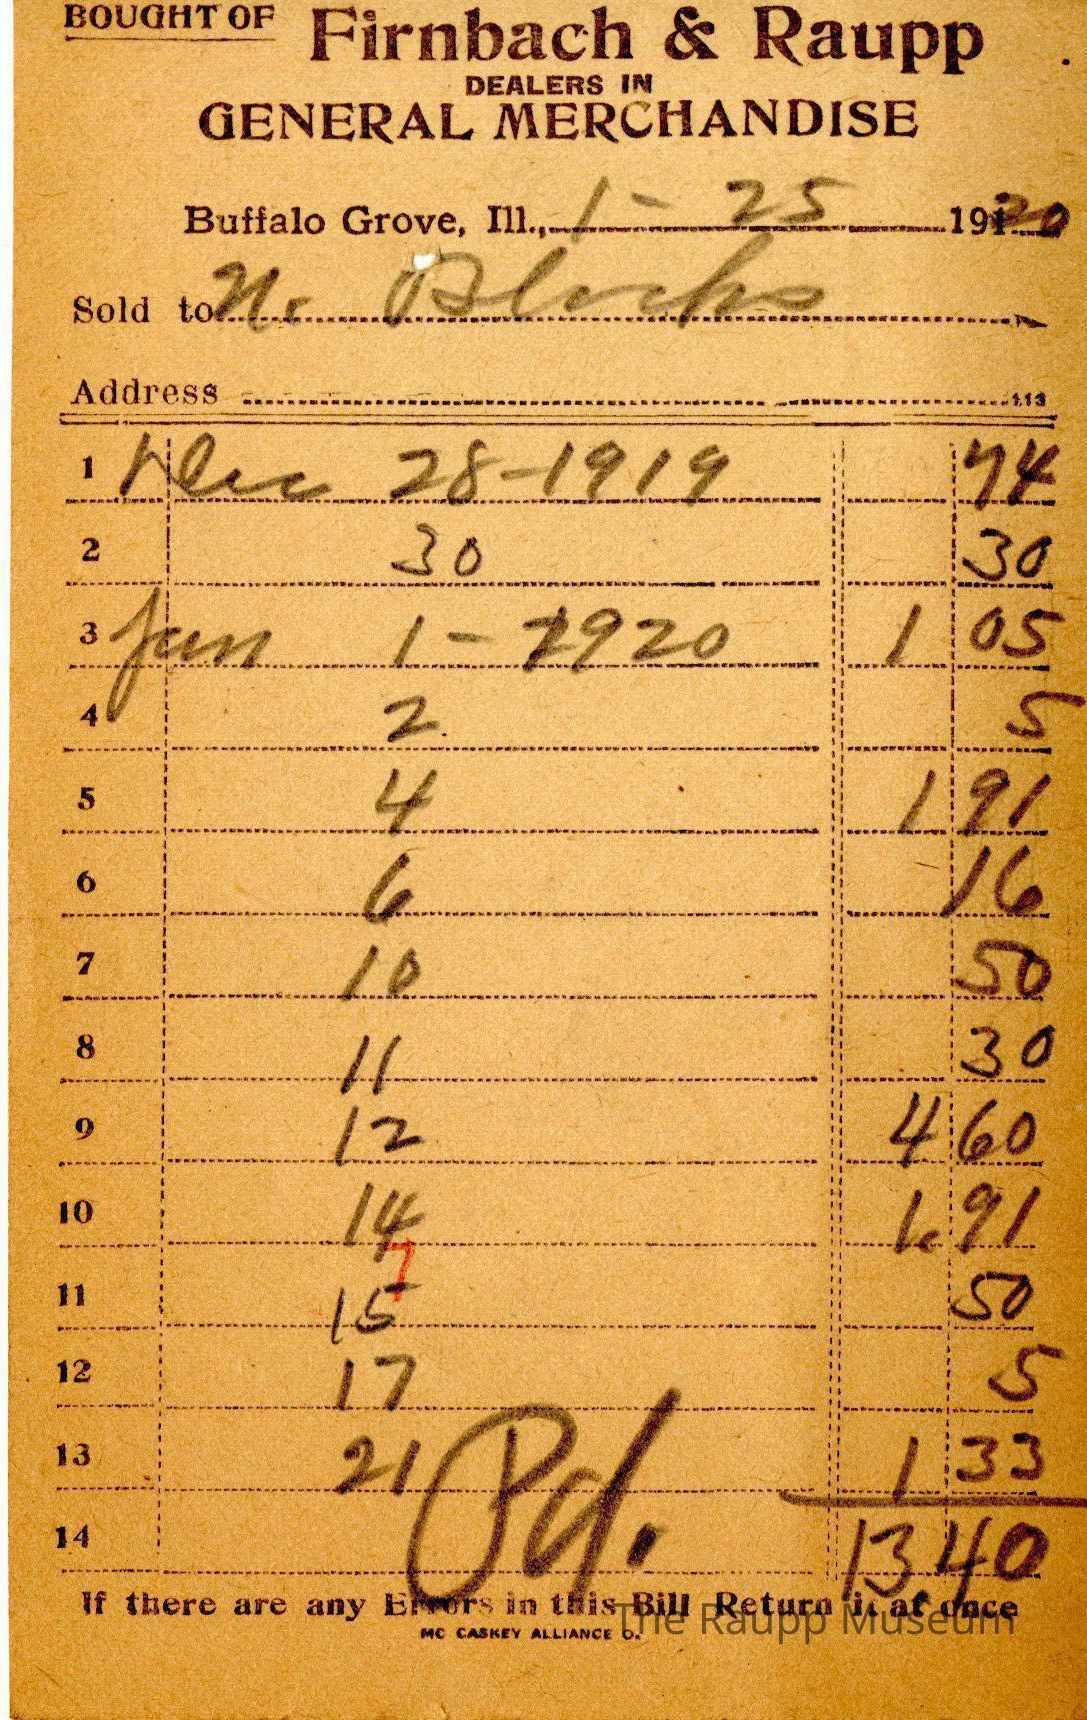 BOUGHT OF Firnbach & Raupp
DEALERS IN
GENERAL MERCHANDISE
Buffalo Grove, Ill., 1-25 1920
Sold to
Address 113
1 Dec 28-1919 74
2 30 30
3 Jan 1-1920 1 05
4 2 5
5 4 1 91
6 6 16
7 10 50
8 11 30
9 12 4 60
10 14 1. 91
7
11 15 50
12 17 5
13 21 1 33
Pd.
14 13.40
If there are any Errors in this Bill Return it at once
MC CASKEY ALLIANCE O.
The Raupp Museum